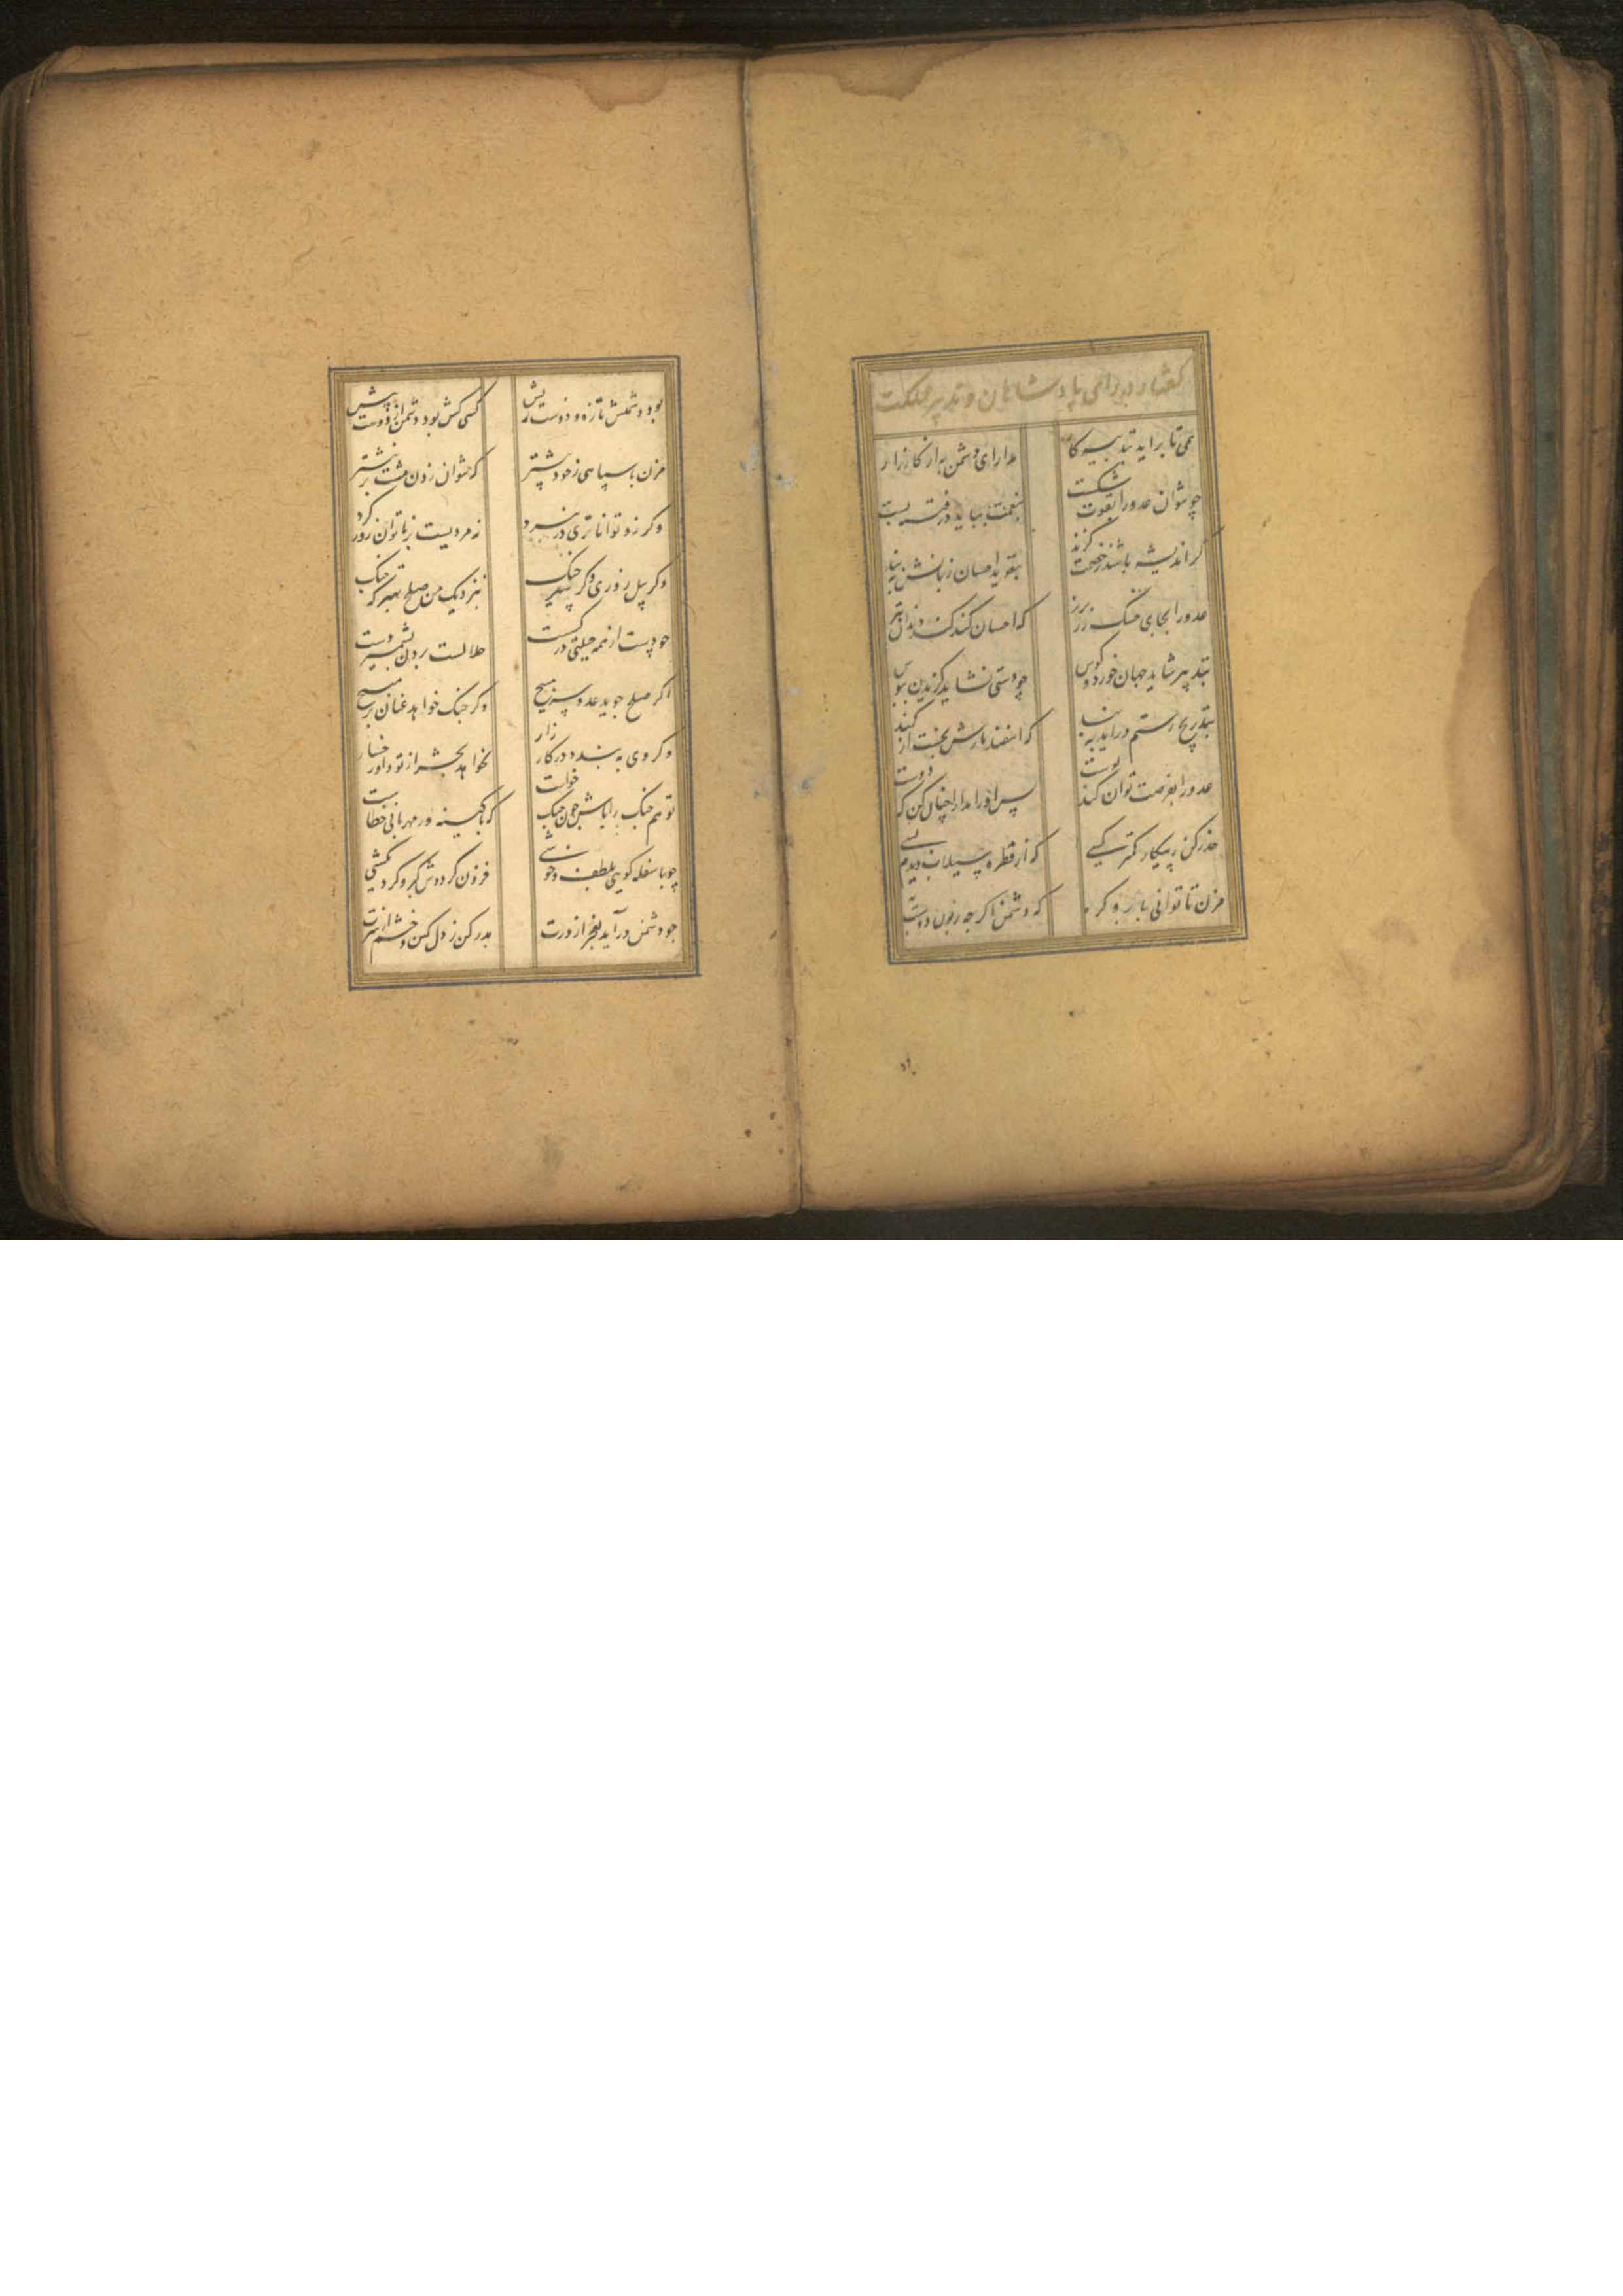 گفتار در رای پادشاهان و تدبیر مملکت
همی تا براید بتدبیر کار
مدارای دشمن به از کارزار
چو نتوان عدو را بقوت شکست
بنعمت بباید در فتنه بست
گر اندیشه باشد ز خصمت گزند
بتعوید احسان زبانش ببند
عدو را بجای خسک زر بریز
که احسان کند کند دندان تیز
بتدبیر شاید جهان خورد و لوس
چو دستی نشاید گزیدن ببوس
بتدریج رستم دراید به بند
که اسفندیارش نجست از کمند
عدو را بفرصت توان کند پوست
پس او را مدارا چنان کن که دوست
حذر کن ز پیکار کمتر کسی
که از قطره سیلاب دیدم بسی
مزن تا توانی بابرو گره
که دشمن اگرچه زبون دوست به
بود دشمنش تازه و دوست ریش
کسی کش بود دشمن از دوست بیش
مزن با سپاهی ز خود بیشتر
که نتوان زدن مشت بر نیشتر
وگر زو تواناتری در نبرد
نه مردیست بر ناتوان زور کرد
وگر پیل زوری وگر شیر چنگ
بنزدیک من صلح بهتر که جنگ
چو دست از همه حیلتی در گسست
حلالست بردن بشمشیر دست
اگر صلح جوید عدو سر مپیچ
وگر جنگ خواهد عنان بر مپیچ
که گر وی ببندد در کارزار
نخواهد بحشر از تو داور شمار
تو هم جنگ را باش چون جنگ خواست
که با کینه ور مهربانی خطاست
چو با سفله گویی بلطف و خوشی
فزون گرددش کبر و گردنکشی
چو دشمن درآید بعجز از درت
بدر کن ز دل کین و خشم از سرت